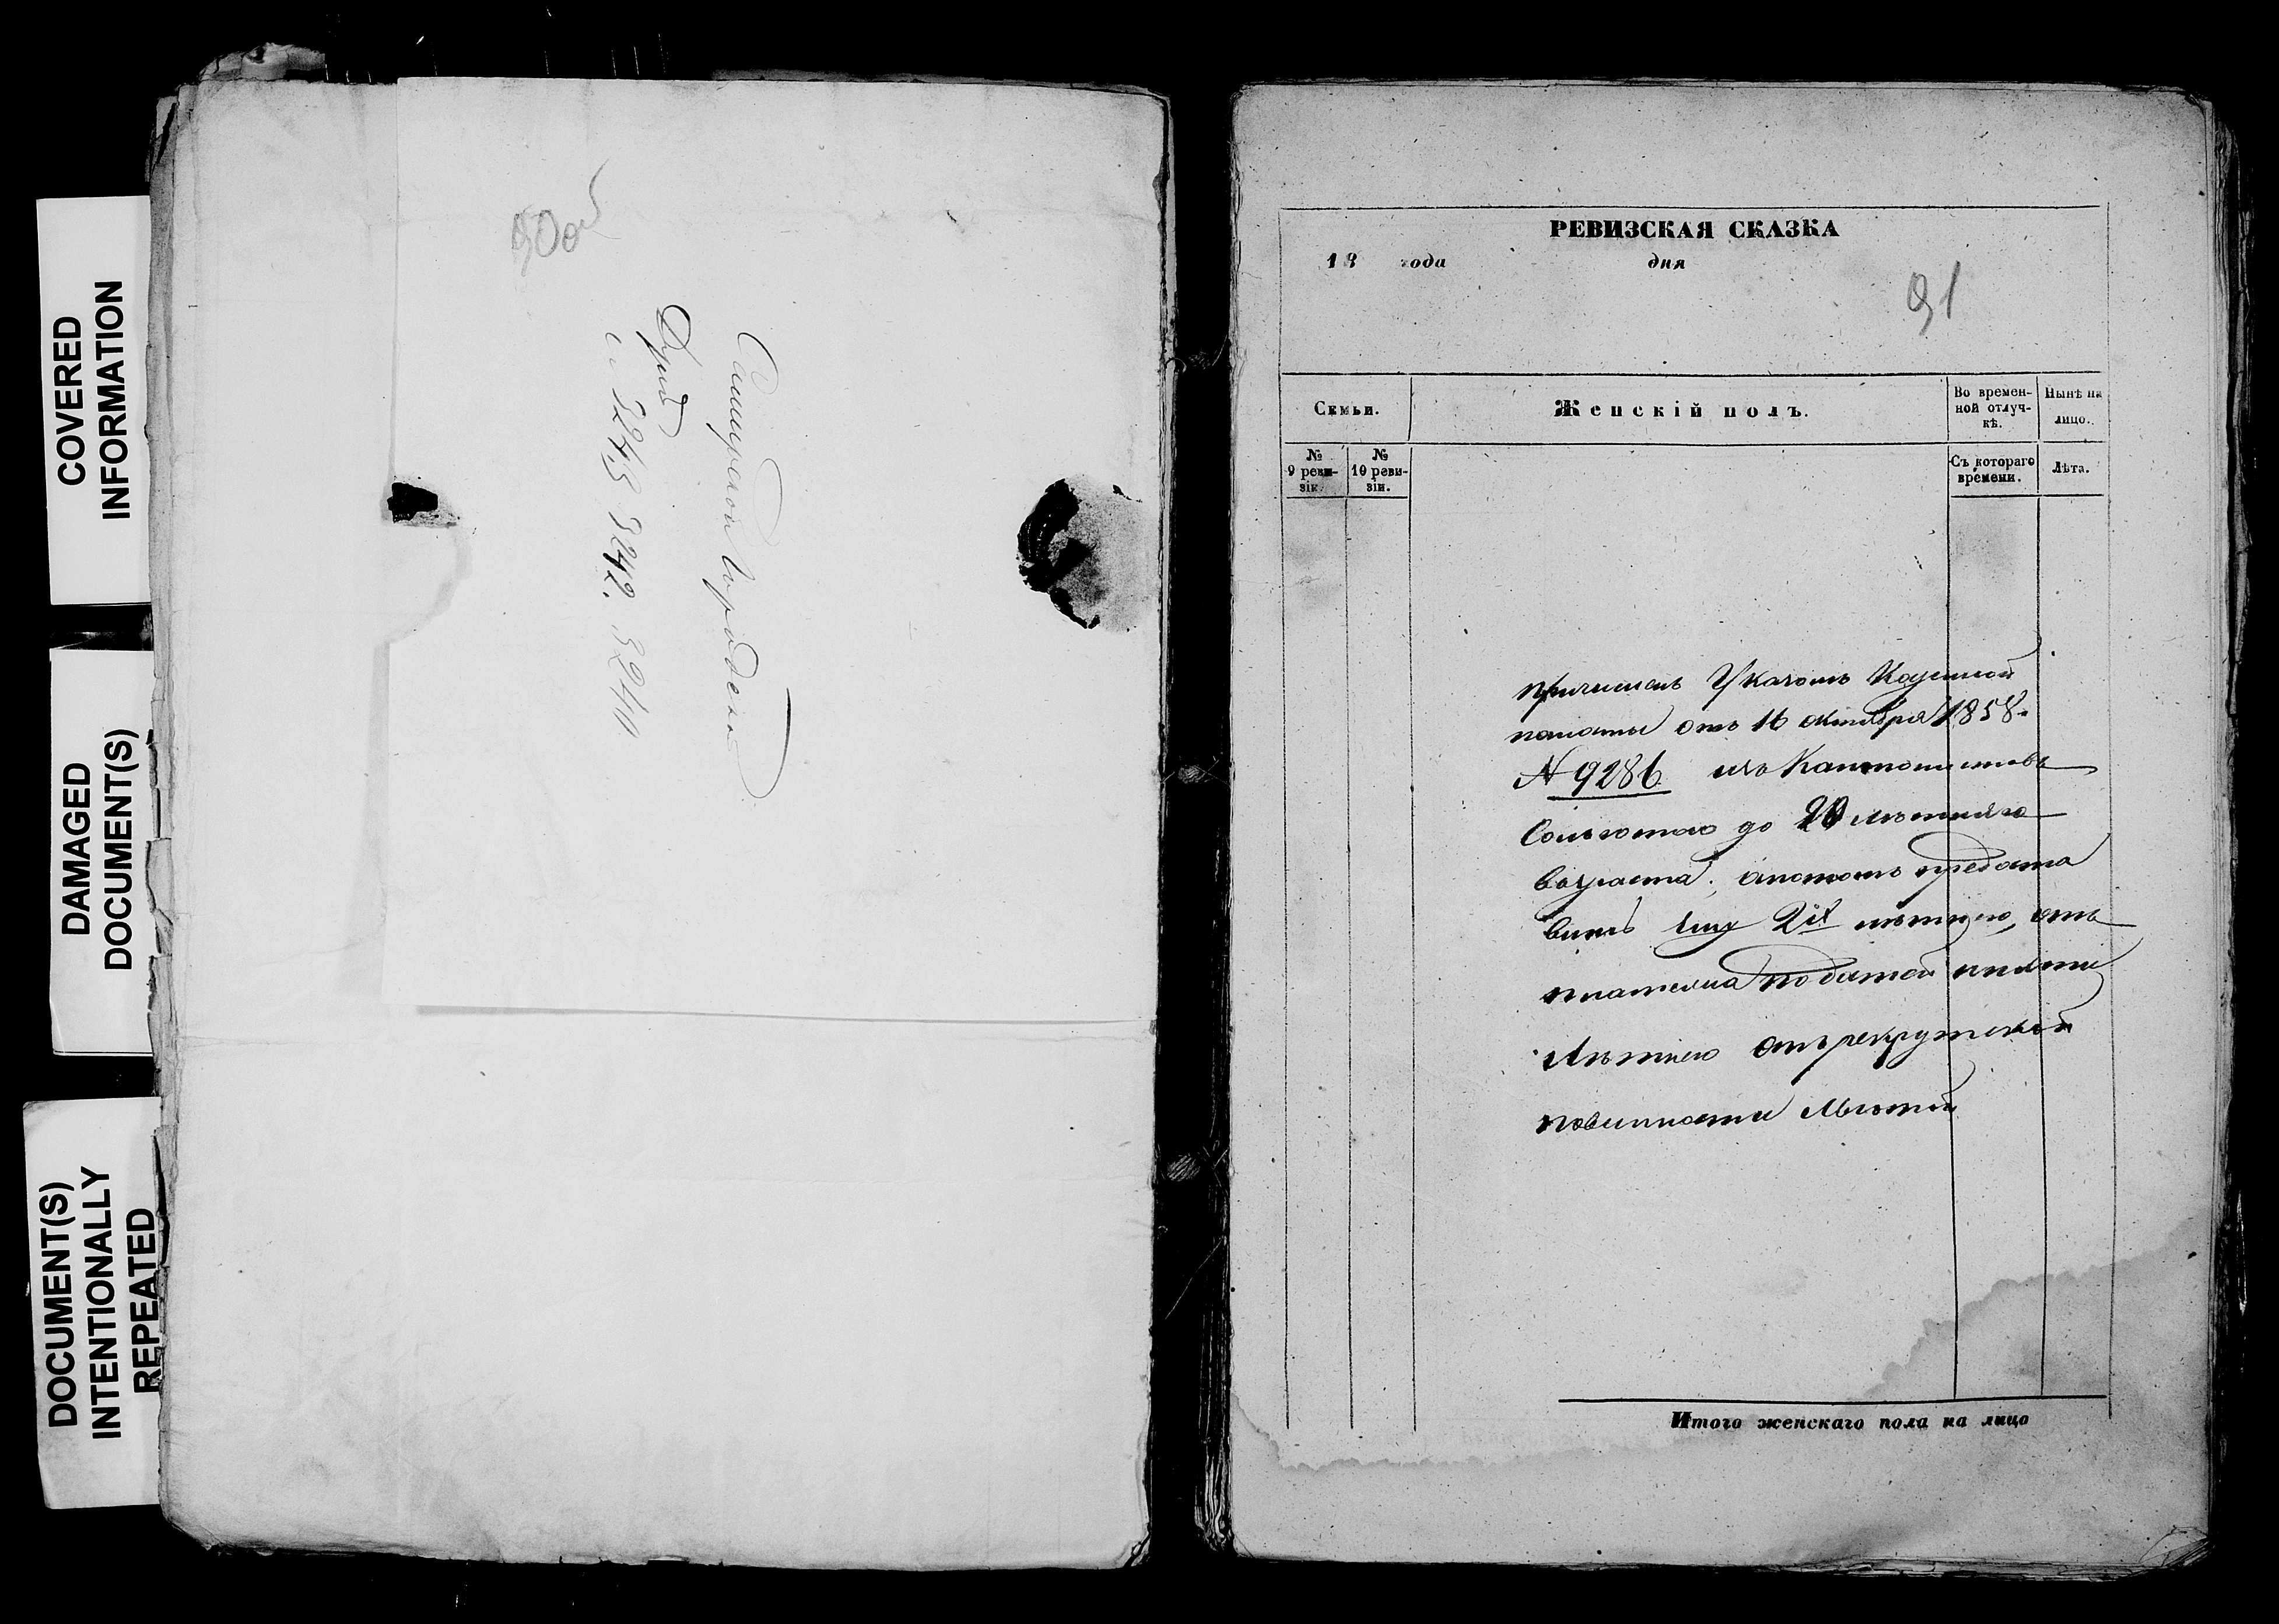 COVERED
INFORMATION
DAMAGED
DOCUMENT(S)
DOCUMENT(S)
INTENTIONALLY
REPEATED
90об
3242. 3240
РЕВИЗСКАЯ СКАЗКА
18 года дня
91
Семьи.
Женскій полъ.
Во времен-
ной отлуч-
кѣ.
Нынѣ на
лицо.
№
9 реви-
зіи.
№
10 реви-
зіи.
Съ котораго
времени.
Лѣта.
Указомъ Казенной
палаты отъ 16 октября 1858.
№ 9286 изъ Кантонистовъ
до 20 лѣтняго
возраста, а потомъ предоста
вить ему лѣтнюю, отъ
платежа податей и
лѣтнею отъ рекрутской
повинности льготы
Итого женскаго пола на лицо